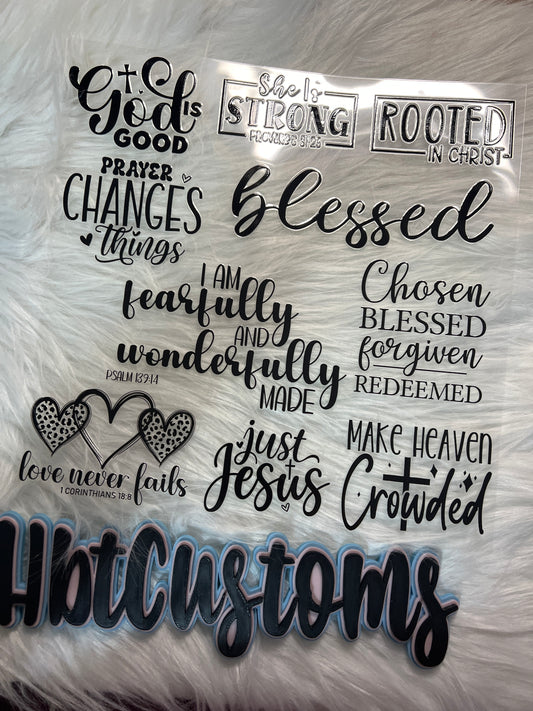 God is
GOOD
She Is
STRONG
PROVERBS 31:25
ROOTED
IN CHRIST
PRAYER
CHANGES
things
blessed
I AM
fearfully
AND
wonderfully
MADE
PSALM 139:14
Chosen
BLESSED
forgiven
REDEEMED
love never fails
1 CORINTHIANS 13:8
just
Jesus
MAKE HEAVEN
Crowded
HbtCustoms